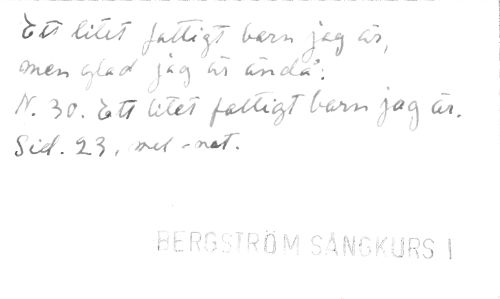 Ett litet fattigt barn jag är,
men glad jag är ändå:
N. 30. Ett litet fattigt barn jag är.
Sid. 23, mel-not.
BERGSTRÖM SÅNGKURS I